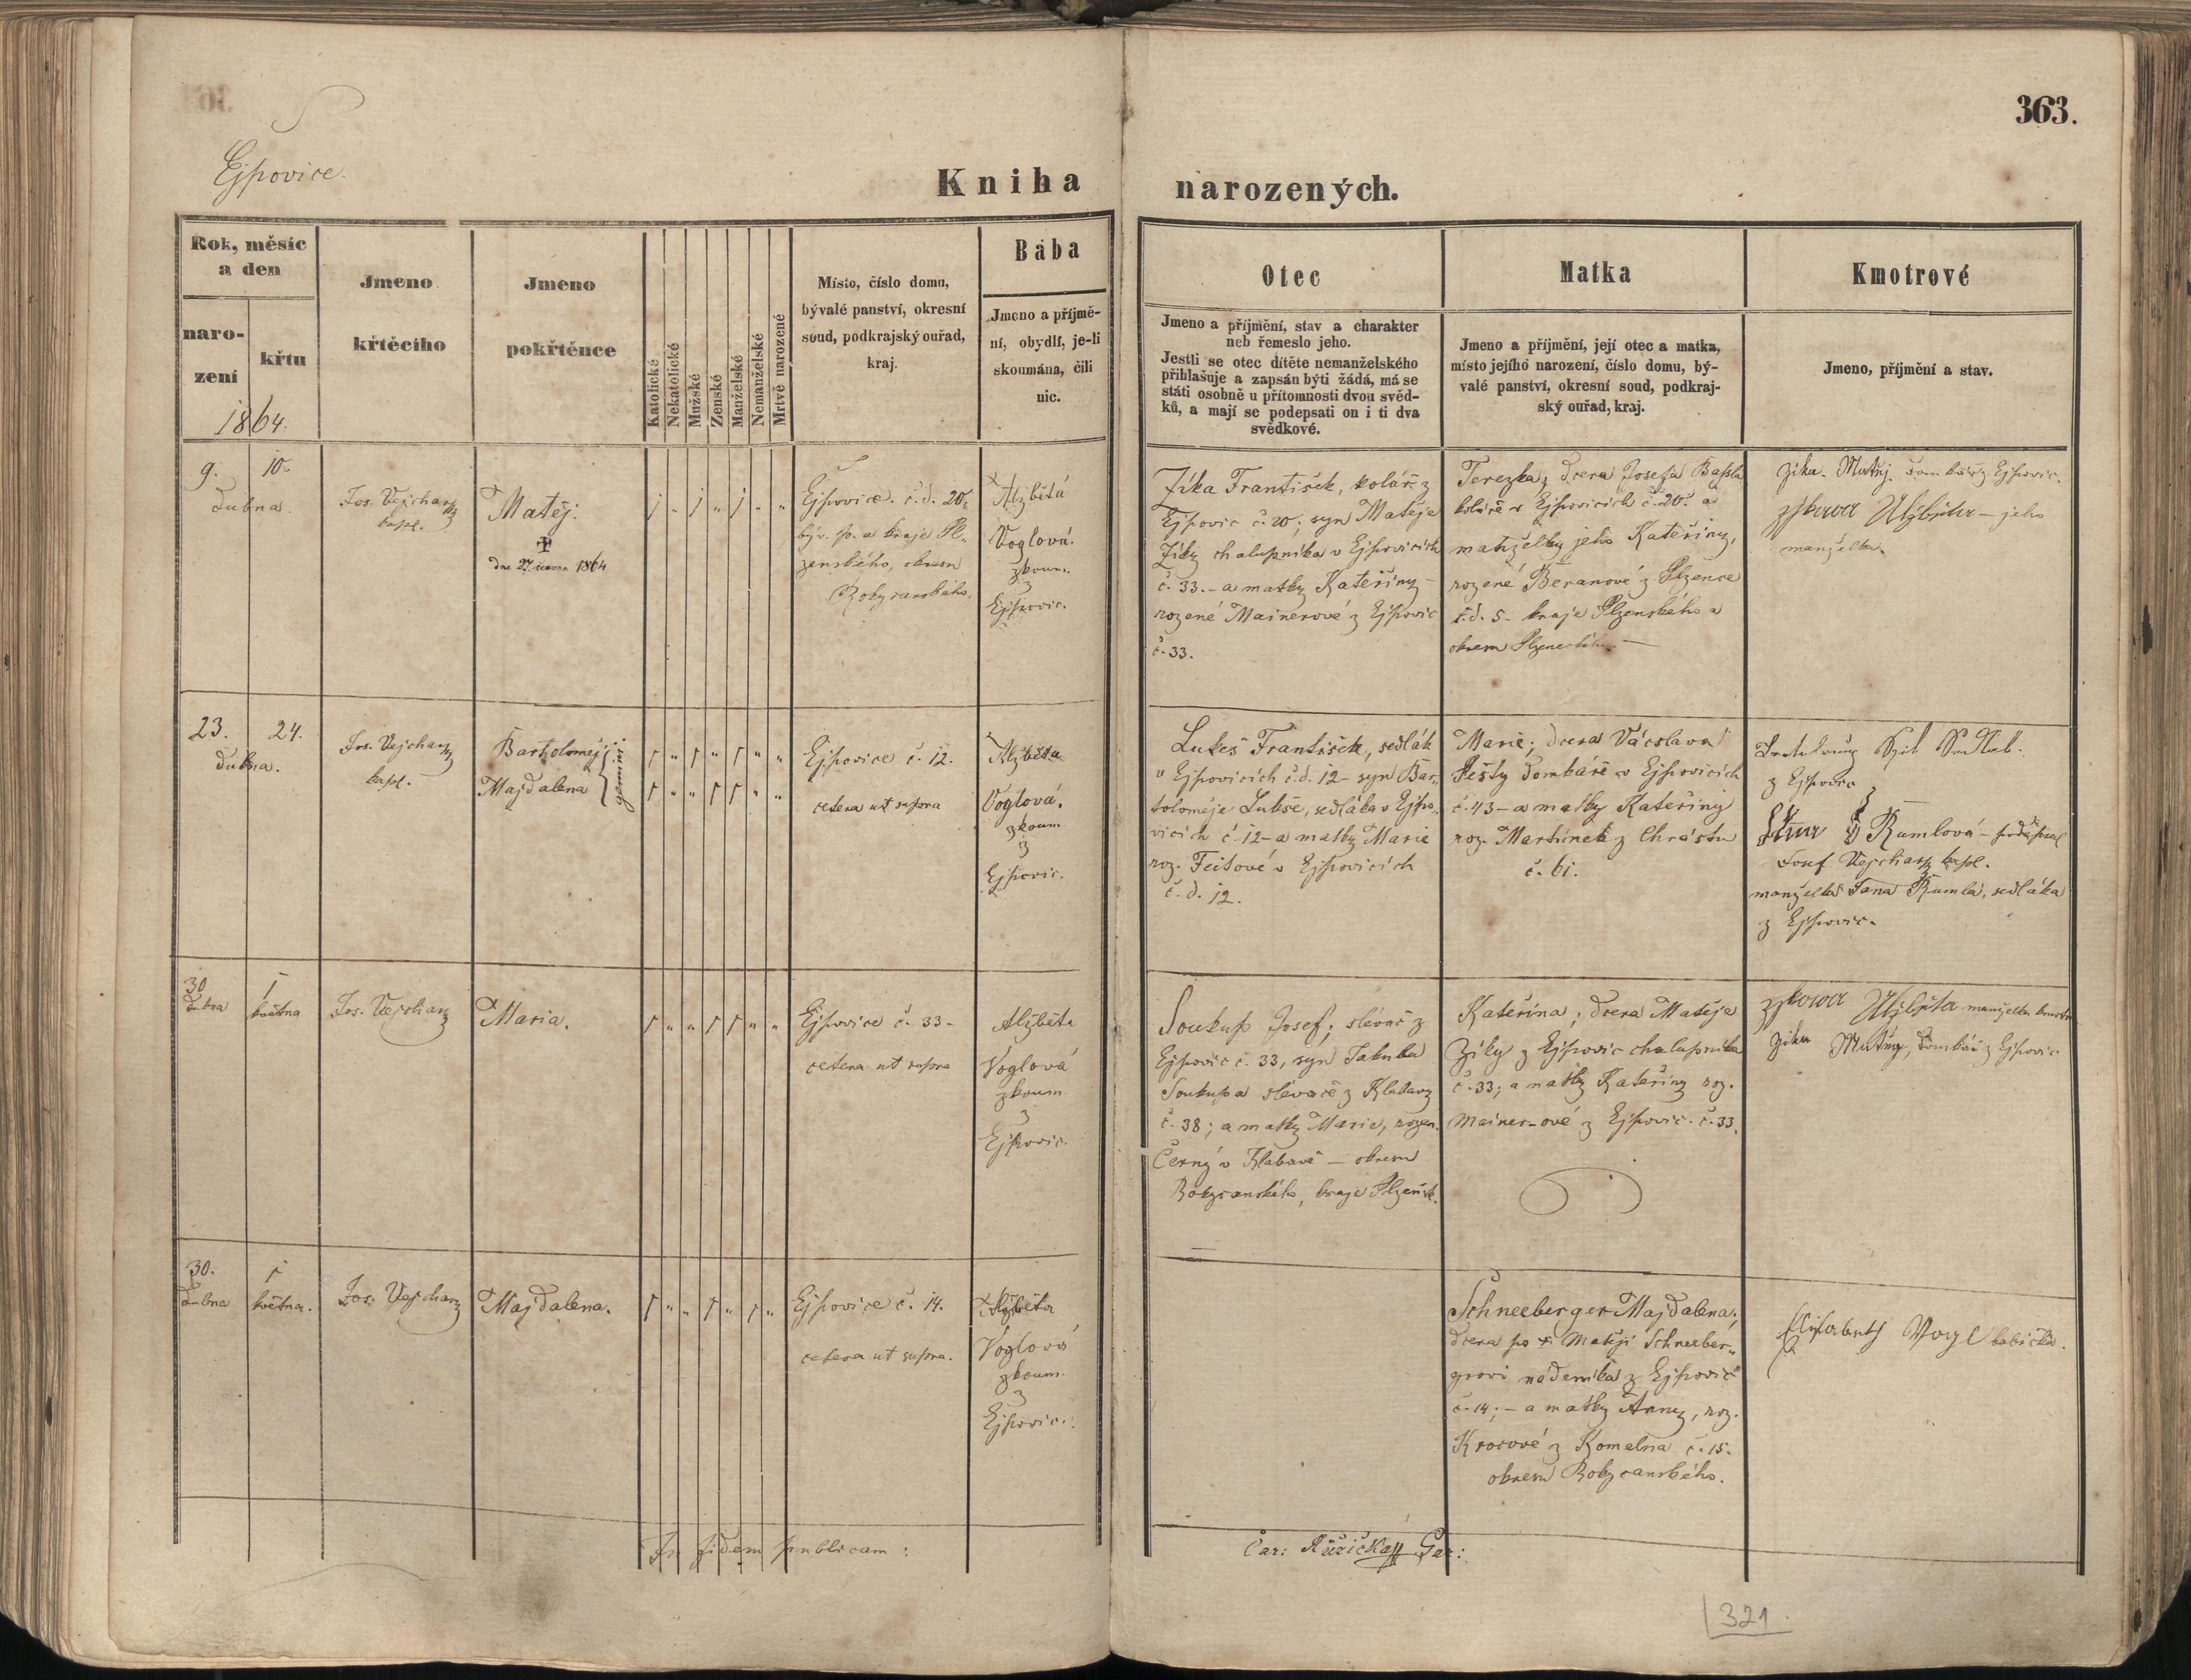 363.
Ejpovice.
Kniha narozených.
Rok, měsíc
a den
naro-
zení
křtu
1864.
Jmeno
křtěcího
Jmeno
pokřtěnce
Katolické
Nekatolické
Mužské
Ženské
Manželské
Nemanželské
Mrtvě narozené
Místo, číslo domu,
bývalé panství, okresní
soud, podkrajský ouřad,
kraj.
Bába
Jmeno a příjmě-
ní, obydlí, je-li
skoumána, čili
nic.
Otec
Jmeno a příjmění, stav a charakter
neb řemeslo jeho.
Jestli se otec dítěte nemanželského
přihlašuje a zapsán býti žádá, má se
státi osobně u přítomnosti dvou svěd-
ků, a mají se podepsati on i ti dva
svědkové.
Matka
Jmeno a příjmění, její otec a matka,
místo jejího narození, číslo domu, bý-
valé panství, okresní soud, podkraj-
ský ouřad, kraj.
Kmotrové
Jmeno, příjmění a stav.
9. 10.
Dubna.
Jos. Vejcharz
kapl.
Matěj.
dne 27. června 1864
j " j " j " "
Ejpovice. č.d. 20.
býv. p. a kraje Pl-
zenského, okresu
Rokycanského.
Alžběta
Voglová.
zkoum.
z
Ejpovic.
Zíka František, kolář z
Ejpovic č. 20; syn Matěje
Zíky chalupníka v Ejpovicích
č. 33. - a matky Kateřiny -
rozené Mainerové z Ejpovic
č. 33.
Terezka, dcera Josefa
koláře v Ejpovicích č. 20. a
manželky jeho Kateřiny,
rozené Beranové z Plzence
č.d. 5. kraje Plzenského a
okresu
Zíka. Matěj. Domkář z Ejpovic.
Alžbjeta - jeho
manželka.
23. 24.
Dubna.
Jos. Vejcharz
kapl.
Bartholomej
Majdalena
gemini
1 " 1 " 1 " "
1 " " 1 1 " "
Ejpovice č. 12.
cetera ut supra
Alžběta
Voglová.
zkoum
z
Ejpovic.
Lukeš František, sedlák
v Ejpovicích č.d. 12 - syn Bar-
toloměje Lukše, sedláka v Ejpo-
vicích č. 12 - a matky Marie
roz. Feitové v Ejpovicích
č. d. 12.
Marie; dcera Václava
Pešty Domkáře v Ejpovicích
č. 43 - a matky Kateřiny
roz. Martínek z Chrástu
č. 61.
z Ejpovic
Rumlová - podepsal
Josef Vejcharz kapl.
manželka Jana Rumla, sedláka
z Ejpovic.
30 1
Dubna května
Jos. Vejcharz
Maria.
1 " " 1 1 " "
Ejpovice č. 33 -
cetera ut supra
Alžběta
Voglová
zkoum
z
Ejpovic.
Soukup Josef; slévač z
Ejpovic č. 33, syn Jakuba
Soukupa slévače z Klabavy
č. 38; a matky Marie, rozen.
Černý v Klabavě - okresu
Rokycanského, kraje Plzeňsk.
Kateřina; dcera Matěje
Zíky z Ejpovic chalupníka
č. 33; a matky Kateřiny roz.
Mainer-ové z Ejpovic. č. 33.
Alžbjeta manželka
Zíka Matěj, Domkář z Ejpovic
30. 1
Dubna května.
Jos. Vejcharz
Majdalena.
1 " " 1 " 1 "
Ejpovice č. 14.
cetera ut supra.
Alžběta
Voglová
zkoum.
z
Ejpovic.
Schneeberger Majdalena;
dcera po + Matěji Schneeber-
grovi nádeníka z Ejpovic
č. 14; - a matky Anny, roz.
Krocové z Komelna č. 15.
okresu Rokycanského.
Elisabeth Vogl babička.
In fidem publicam:
Car: Růžička
321.